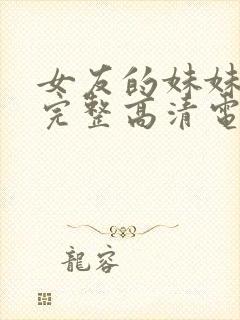 女友的妹妹
完整高清電
龍容